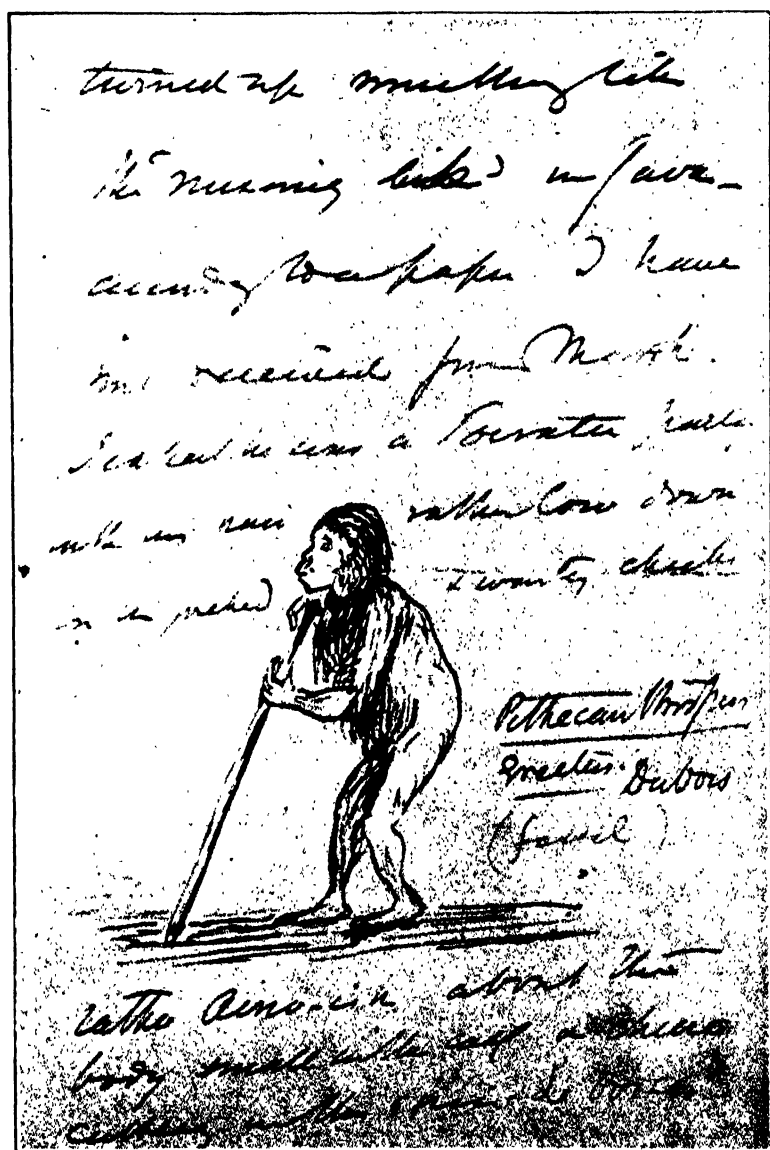 turned up something like
the missing link in Java—
according to a paper I have
just received from Marsh.
I expect he was a Socratic party
with his hair rather low down
on his forehead & warty cheeks
Pithecanthropus
erectus. Dubois
(fossil)
rather Aino-ish about the
body small in the calf a
cutting in the